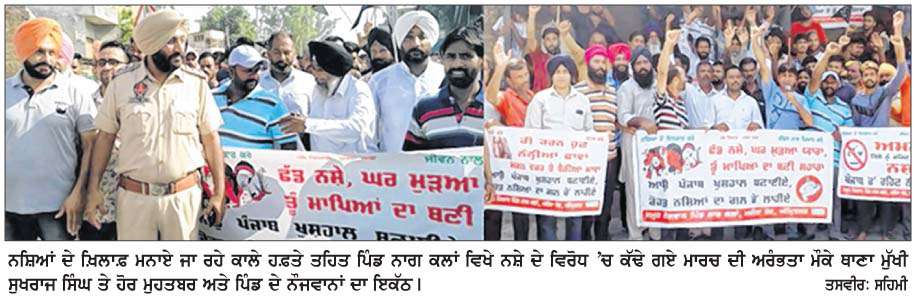 ਜੀਵਨ ਨਾਲ
ਛੱਡ ਨਸ਼ੇ, ਘਰ ਮੁੜਆ
ਤੂੰ ਮਾਪਿਆਂ ਦਾ ਬਣੀ
ਪੰਜਾਬ ਖੁਸ਼ਹਾਲ ਬਣਾਈਏ
ਛੱਡ ਨਸ਼ੇ, ਘਰ ਮੁੜਆ ਯਾਰਾ,
ਤੂੰ ਮਾਪਿਆਂ ਦਾ ਬਣੀ ਸਹਾਰਾ
ਆਓ ਪੰਜਾਬ ਖੁਸ਼ਹਾਲ ਬਣਾਈਏ,
ਕੋਹੜ ਨਸ਼ਿਆਂ ਦਾ ਗਲ ਤੋਂ ਲਾਹੀਏ
ਨਸ਼ਿਆਂ ਦੇ ਖ਼ਿਲਾਫ਼ ਮਨਾਏ ਜਾ ਰਹੇ ਕਾਲੇ ਹਫ਼ਤੇ ਤਹਿਤ ਪਿੰਡ ਨਾਗ ਕਲਾਂ ਵਿਖੇ ਨਸ਼ੇ ਦੇ ਵਿਰੋਧ 'ਚ ਕੱਢੇ ਗਏ ਮਾਰਚ ਦੀ ਅਰੰਭਤਾ ਮੌਕੇ ਥਾਣਾ ਮੁੱਖੀ
ਸੁਖਰਾਜ ਸਿੰਘ ਤੇ ਹੋਰ ਮੁਹਤਬਰ ਅਤੇ ਪਿੰਡ ਦੇ ਨੌਜਵਾਨਾਂ ਦਾ ਇਕੱਠ।
ਤਸਵੀਰ: ਸਹਿਮੀ